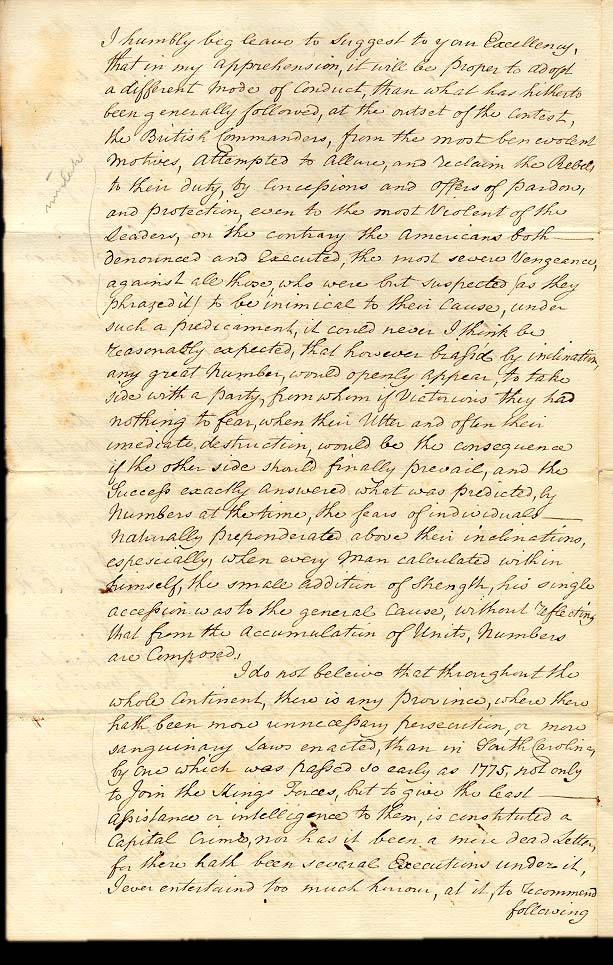 I humbly beg leave to suggest to your Excellency,
that in my apprehension, it will be proper to adopt
a different mode of Conduct, than what has hitherto
been generally followed, at the outset of the contest,
the British Commanders, from the most benevolent
Motives, attempted to allure, and reclaim the Rebels
to their duty, by Concessions and offers of pardon,
and protection, even to the most Violent of the
Leaders, on the contrary the Americans both
denounced and Executed, the most severe Vengeance,
against all those, who were but suspected (as they
phrazed it) to be inimical to their Cause, under
such a predicament, it could never I think be
reasonably expected, that however biass'd by inclination,
any great Number, would openly appear, to take
side with a party, from whom if Victorious they had
nothing to fear, when their Utter and often their
imediate destruction, would be the consequence
if the other side should finally prevail, and the
Success exactly answered, what was predicted, by
Numbers at the time, the fears of individuals
naturally preponderated above their inclinations,
especially, when every Man calculated within
himself, the small addition of Strength, his single
accession was to the general Cause, without reflecting
that from the Accumulation of Units, Numbers
are Composed.
I do not beleive that throughout the
whole Continent, there is any Province, where there
hath been more unnecessary persecution, or more
sanguinary Laws enacted, than in South Carolina,
by one which was passed so early as 1775, not only
to Join the Kings Forces, but to give the least
assistance or intelligence to them, is constituted a
Capital Crime, nor has it been a mere dead Letter,
for there hath been several Executions under it,
I ever entertaind too much horrour, at it, to recommend
following